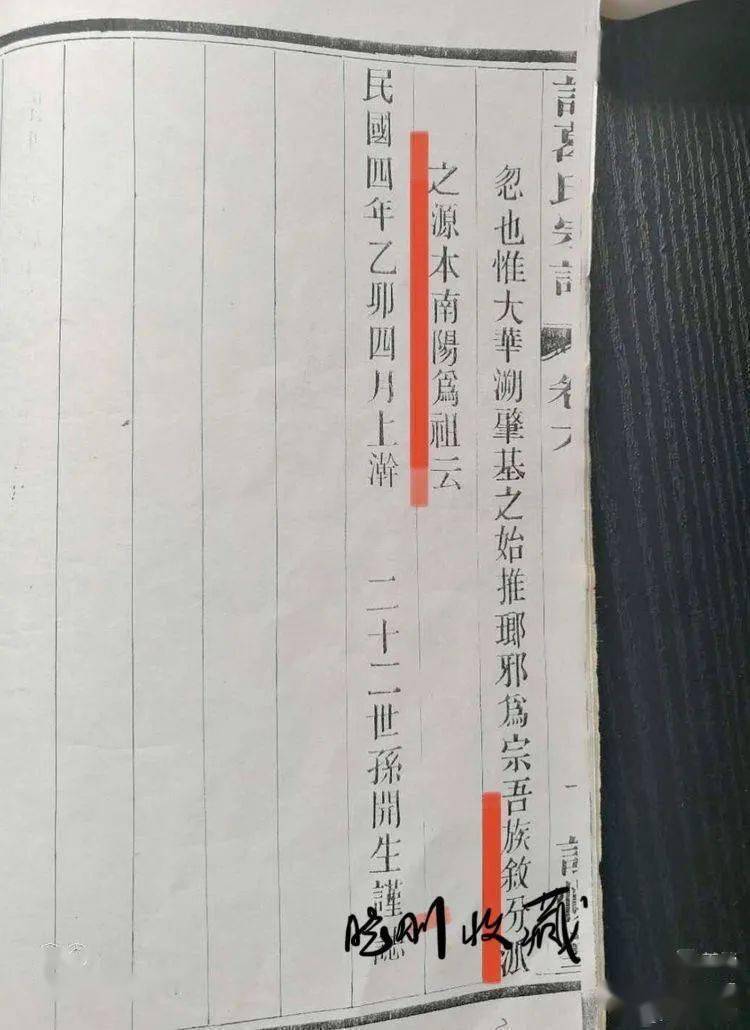 諸葛氏宗譜 卷
忽也惟大華溯肇基之始推瑯邪爲宗吾族敘分派
之源本南陽爲祖云
民國四年乙卯四月上澣 二十二世孫開生謹
收藏